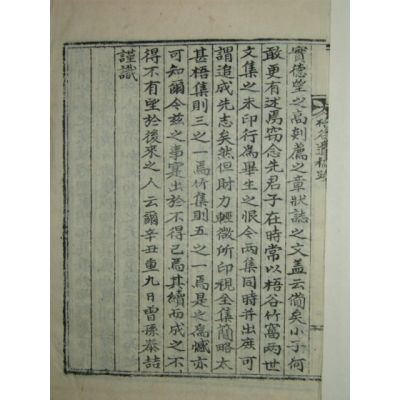 實德望之高剡薦之章狀誌之文盖云備矣小子何
敢更有述焉窃念先君子在時常以梧谷竹窩兩世
文集之未印行爲畢生之恨今兩集同時并出庶可
謂追成先志矣然但財力輕微所印視全集簡略太
甚梧集則三之一焉竹集則五之一焉是之爲憾亦
可知爾今玆之事寔出於不得已焉其續而成之不
得不有望於後來之人云爾辛丑重九日曾孫泰喆
謹識